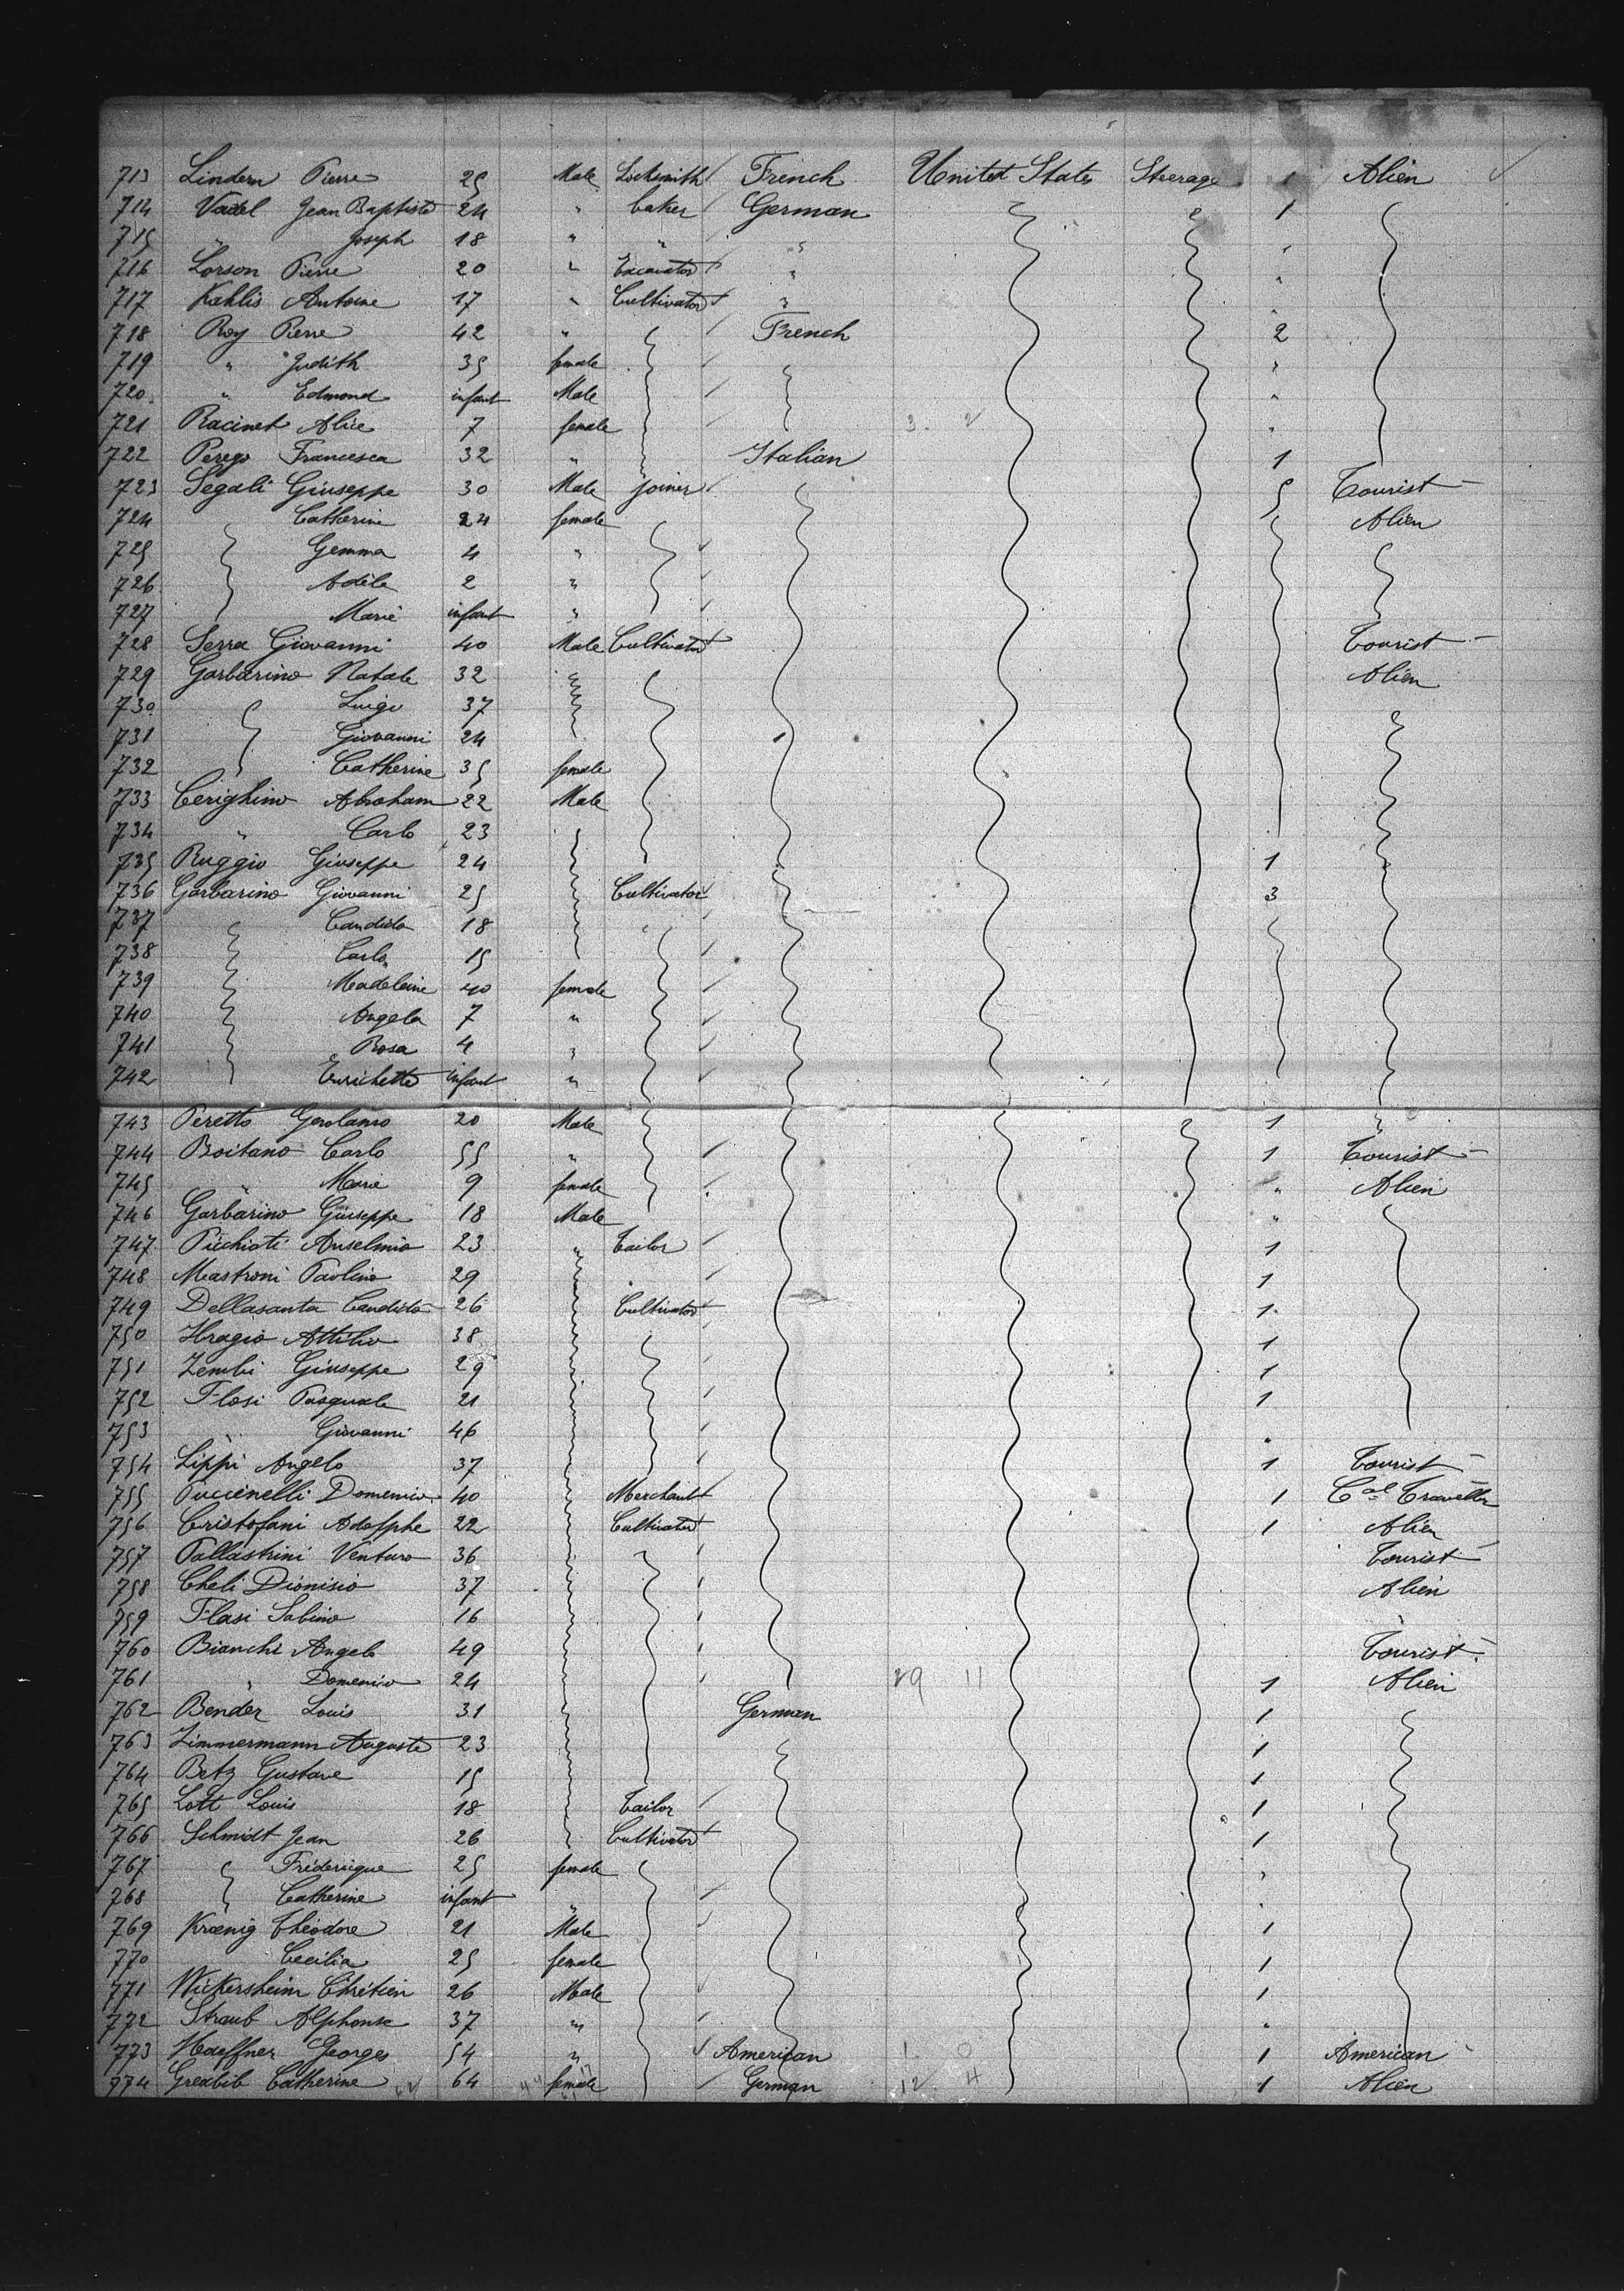 713 Lindern Pierre 25 Male Locksmith French United States Steerage 1 Alien
714 Vadel Jean Baptiste 24 " baker German 1
715 " Joseph 18 " " " "
716 Lorson Pierre 20 " Excavator " "
717 Kahlis Antoine 17 " Cultivator "
718 Roy Pierre 42 " French 2
719 " Judith 35 female "
720 " Edmond infant Male "
721 Racinet Alice 7 female 3 2 "
722 Perego Francesca 32 " Italian 1
723 Segali Giuseppe 30 Male joiner 5 Tourist
724 Catherine 24 female Alien
725 Gemma 4 "
726 Adèle 2 "
727 Marie infant "
728 Serra Giovanni 40 Male Cultivator Tourist
729 Garbarino Natale 32 Alien
730 Luigi 37
731 Giovanni 24
732 Catherine 35 female
733 Cerighino Abraham 22 Male
734 " Carlo 23
735 Ruggio Giuseppe 24 1
736 Garbarino Giovanni 25 Cultivator 3
737 Candida 18
738 Carlo 15
739 Madeleine 40 female
740 Angela 7 "
741 Rosa 4 "
742 Enrichetta infant "
743 Peretto Gerolamo 20 Male 1 "
744 Boitano Carlo 55 " 1 Tourist
745 " Marie 9 female " Alien
746 Garbarino Giuseppe 18 Male "
747 Picchioti Anselmio 23 Tailor 1
748 Mastroni Paolino 29 1
749 Dellasanta Candido 26 Cultivator 1
750 Attilio 38 1
751 Zembi Giuseppe 29 1
752 Flosi Pasquale 21 1
753 " Giovanni 46 "
754 Lippi Angelo 37 1 Tourist
755 Puccinelli Domenico 40 Merchant 1 Cal Traveller
756 Cristofani Adolphe 22 Cultivator 1 Alien
757 Pallastrini Venturo 36 Tourist
758 Cheli Dionisio 37 Alien
759 Flasi Sabino 16 "
760 Bianchi Angelo 49 Tourist
761 " Domenico 24 29 11 1 Alien
762 Bender Louis 31 German 1
763 Zimmermann Auguste 23 1
764 Betz Gustave 15 1
765 Lott Louis 18 Tailor 1
766 Schmidt Jean 26 Cultivator 1
767 Fréderique 25 female "
768 Catherine infant " "
769 Krœnig Théodore 21 Male 1
770 Cecilia 25 female 1
771 Wickersheim Chrétien 26 Male 1
772 Straub Alphonse 37 " "
773 Haeffner Georges 54 " American 1 0 1 American
774 Catherine 64 female German 12 4 1 Alien